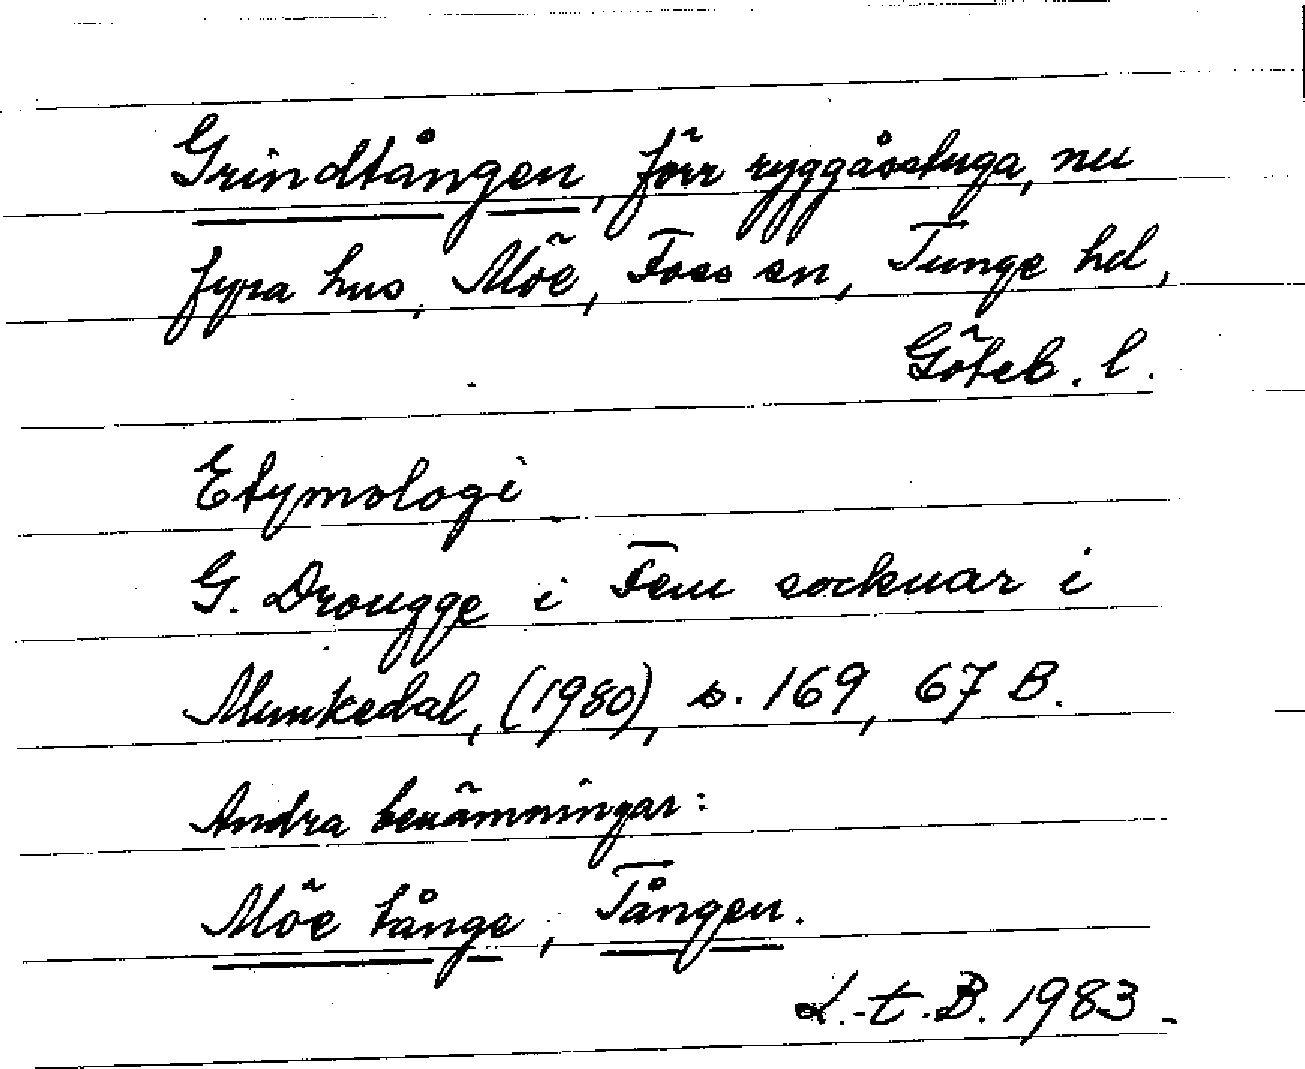 Grindtången, förr ryggåsstuga, nu
fyra hus, Möe, Foss sn, Tunge hd,
Göteb. l.
Etymologi
G. Drougge i Fem socknar i
Munkedal, (1980), s. 169, 67 B.
Andra benämningar:
Möe tånge, Tången.
L.-t. B. 1983